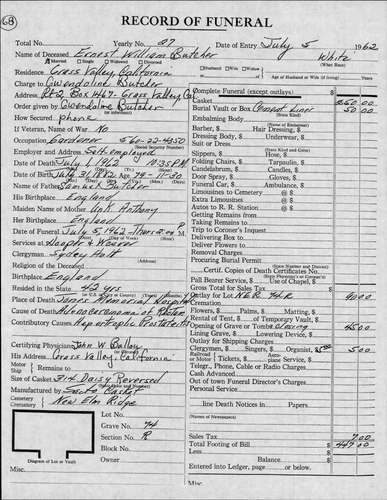 68
RECORD OF FUNERAL
Total No. Yearly No. 27 Date of Entry July 5 1962
Name of Deceased Ernest William Butcher White
Married Single Widowed Divorced (What Race)
Residence Grass Valley, California Husband Wife Widow of
Charge to Gwendoline Butcher Age of Husband or Wife (if living)
Address Rt 2 Box 467 - Grass Valley, Ca
Order given by Gwendoline Butcher
How Secured phone
If Veteran, Name of War No
Occupation Gardener 560-22-4350
(Social Security Number)
Employer and Address Self employed
Date of Death July 1, 1962 10:35 P.M.
Date of Birth July 31, 1882 Age 79-11-20
Name of Father Samuel Butcher
His Birthplace England
Maiden Name of Mother Unk Anthony
Her Birthplace England
Date of Funeral July 5, 1962 - Thurs 2:00 P.M.
Services at Hooper & Weaver
Clergyman Sydney Hatt
(Address)
Religion of the Deceased
Birthplace England
Resided in the State 42 yrs
Place of Death Jones Memorial Hospital
Cause of Death Adenocarcinoma of Rectum
Contributory Causes
Certifying Physician John W. Bailey
His Address Grass Valley, California
Motor
Ship
Remains
Size of Casket 314 Daisy Reversed
Manufactured by Casket
Cemetery
Crematory New Elm Ridge
Lot No.
Grave No. 74
Section No. R
Block No.
Owner
Diagram of Lot or Vault
Misc.
Complete Funeral (except outlays) $
Casket 250 00
Burial Vault or Box Cement Liner 50 00
(Kind)
Embalming Body
(Name of Embalmer)
Barber, $ Hair Dressing, $
Dressing Body, $ Underwear, $
Suit or Dress
(State Kind and Color)
Slippers, $ Hose, $
Folding Chairs, $ Tarpaulin, $
Candelabrum, $ Candles, $
Door Spray, $ Gloves, $
Funeral Car, $ Ambulance, $
Limousines to Cemetery @ $
Extra Limousines @ $
Autos to R. R. Station @ $
Getting Remains from
Taking Remains to
Trip to Coroner's Inquest
Delivering Box to
Deliver Flowers to
Removal Charges
Procuring Burial Permit
(State Number and District)
Certif. Copies of Death Certificates No.
Pall Bearer Service
Use of Chapel
Gross Total for Sales Tax $
Outlay for Lot N.E.R. 74-R 90 00
Cremation
Flowers, $ Palms, $ Matting, $
Rental of Tent, $ of Temporary Vault, $
Opening of Grave or Tomb closing 45 00
Lining Grave, $ Lowering Device, $
Outlay for Shipping Charges
Clergymen, $ Singers, $ Organist, $ 5 00
Railroad or Motor Tickets, $ Aeroplane Service, $
Telegr., Phone, Cable or Radio Charges
Cash Advanced
Out of town Funeral Director's Charges
Personal Service
line Death Notices in
(Names of Newspapers)
Sales Tax 7 00
Total Footing of Bill $ 447 00
Less
Balance $
Entered into Ledger, page or below.
Misc.